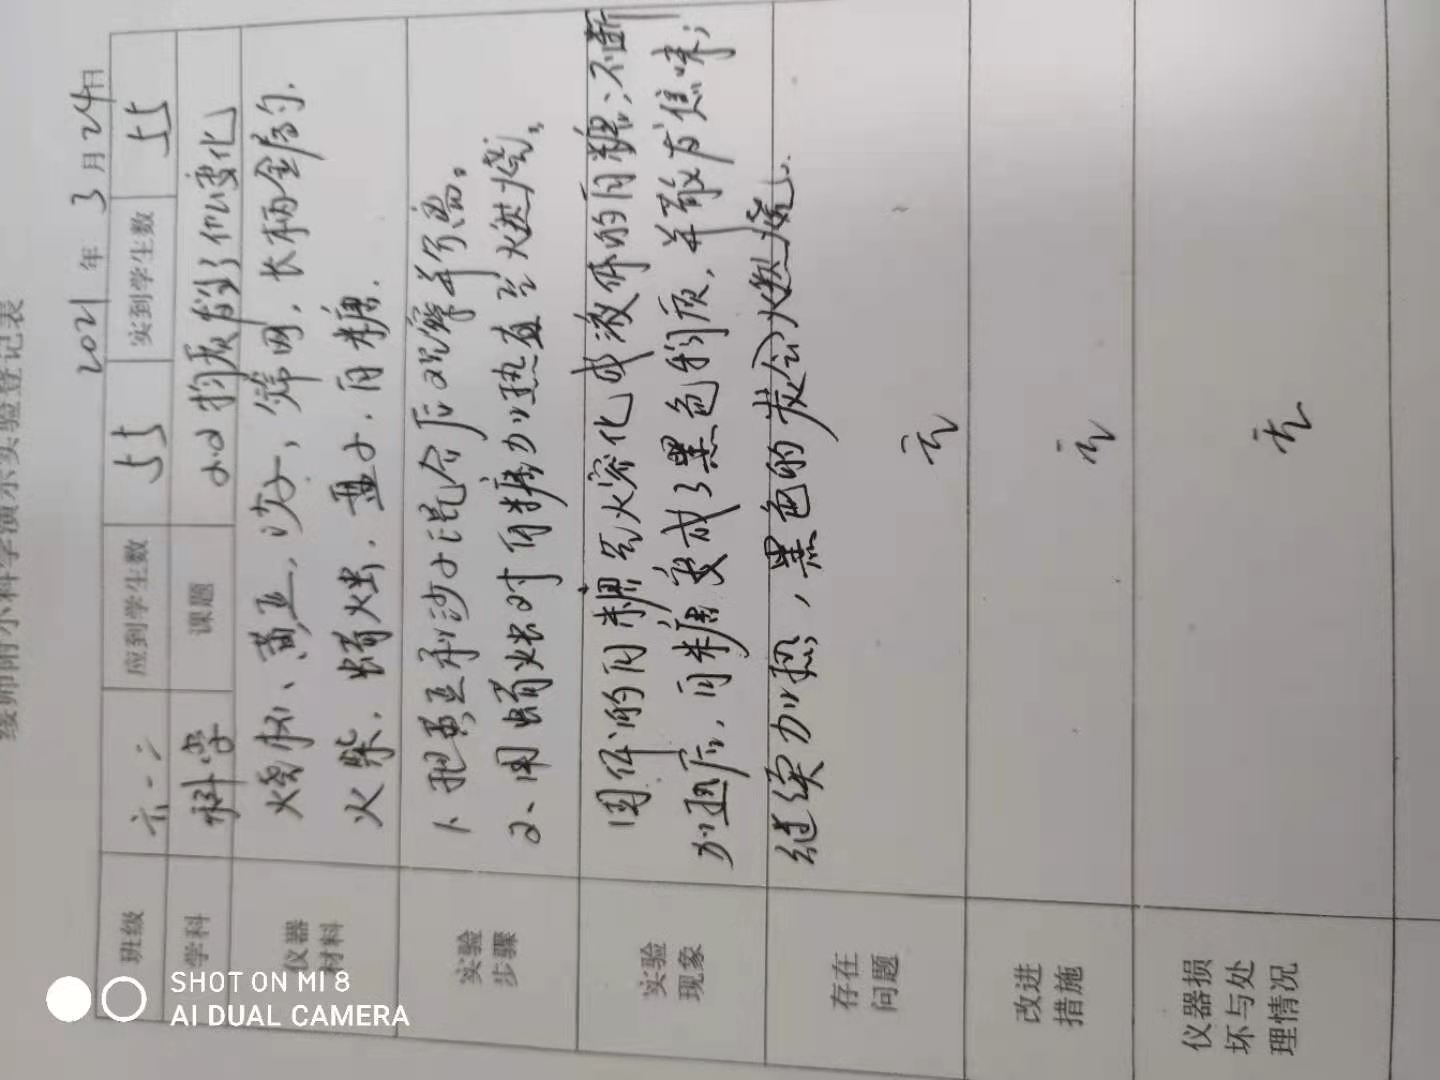 绥师附小科学演示实验登记表
2021年3月24日
班级 六·二 应到学生数 55 实到学生数 55
学科 科学 课题 2.2物质发生了什么变化
仪器材料 烧杯、黄豆,沙子,筛网,长柄金属勺,
火柴,蜡烛,盘子,白糖.
实验步骤 1、把黄豆和沙子混合后观察并分离。
2、用蜡烛对白糖加热直至燃烧。
实验现象 固体的白糖先熔化成液体的白糖;不断
加热后,白糖变成了黑色物质,并散发焦味;
继续加热,黑色的炭会燃烧.
存在问题 无
改进措施 无
仪器损坏与处理情况 无
SHOT ON MI 8
AI DUAL CAMERA